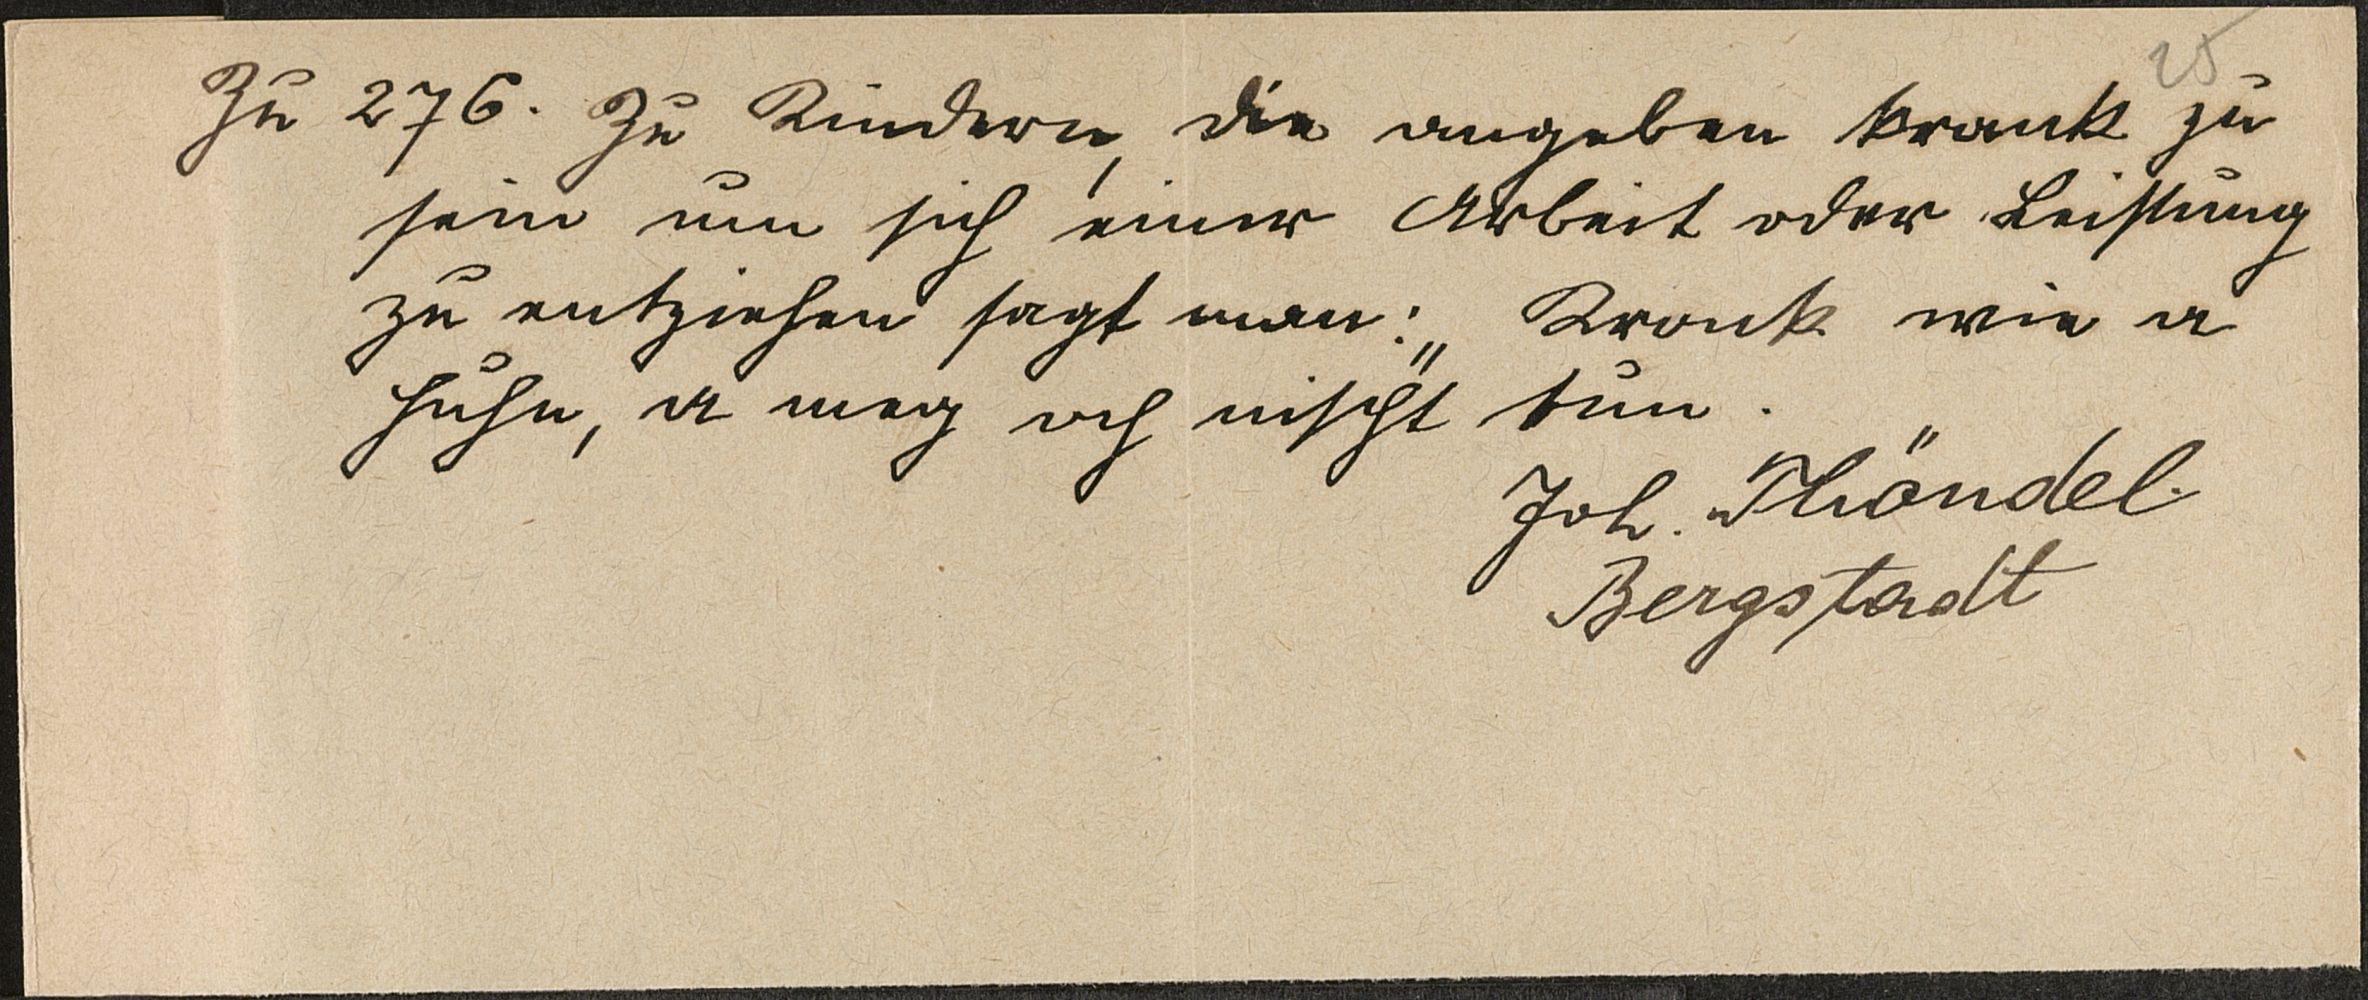 25
Zu 276. Zu Kindern, die angeben krank zu
sein um sich einer Arbeit oder Leistung
zu entziehen sagt man: „Kronk wie a
Huhn, a meg och nischt tun.
Joh. Thöndel
Bergstadt